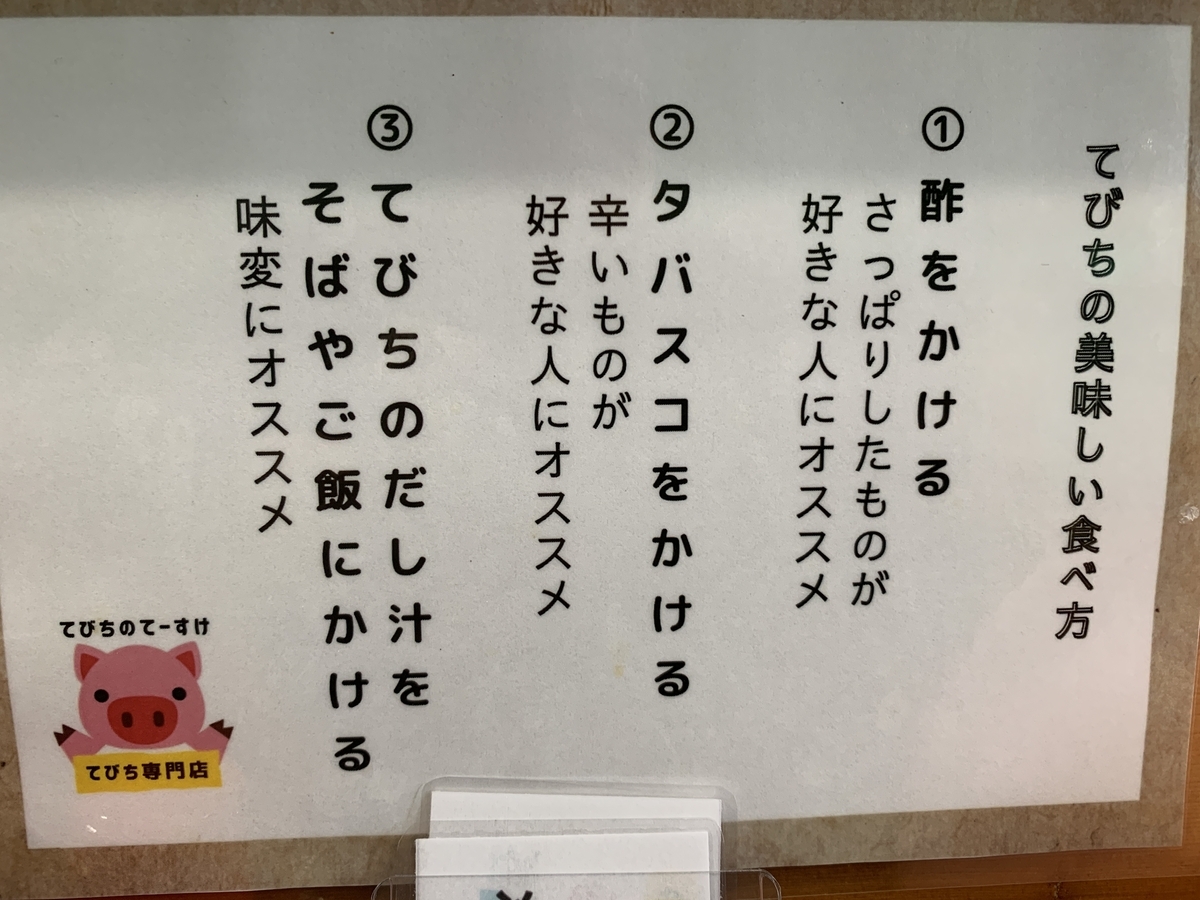 てびちの美味しい食べ方
①酢をかける
さっぱりしたものが
好きな人にオススメ
②タバスコをかける
辛いものが
好きな人にオススメ
③てびちのだし汁を
そばやご飯にかける
味変にオススメ
てびちのてーすけ
てびち専門店